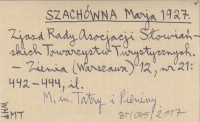 SZACHÓWNA Marja 1927.
Zjazd Rady Asocjacji Słowiań-
skich Towarzystw Turystycznych.
- Ziemia (Warszawa) 12, nr 21:
442-444, il.
M. in. Tatry i Pieniny
MT